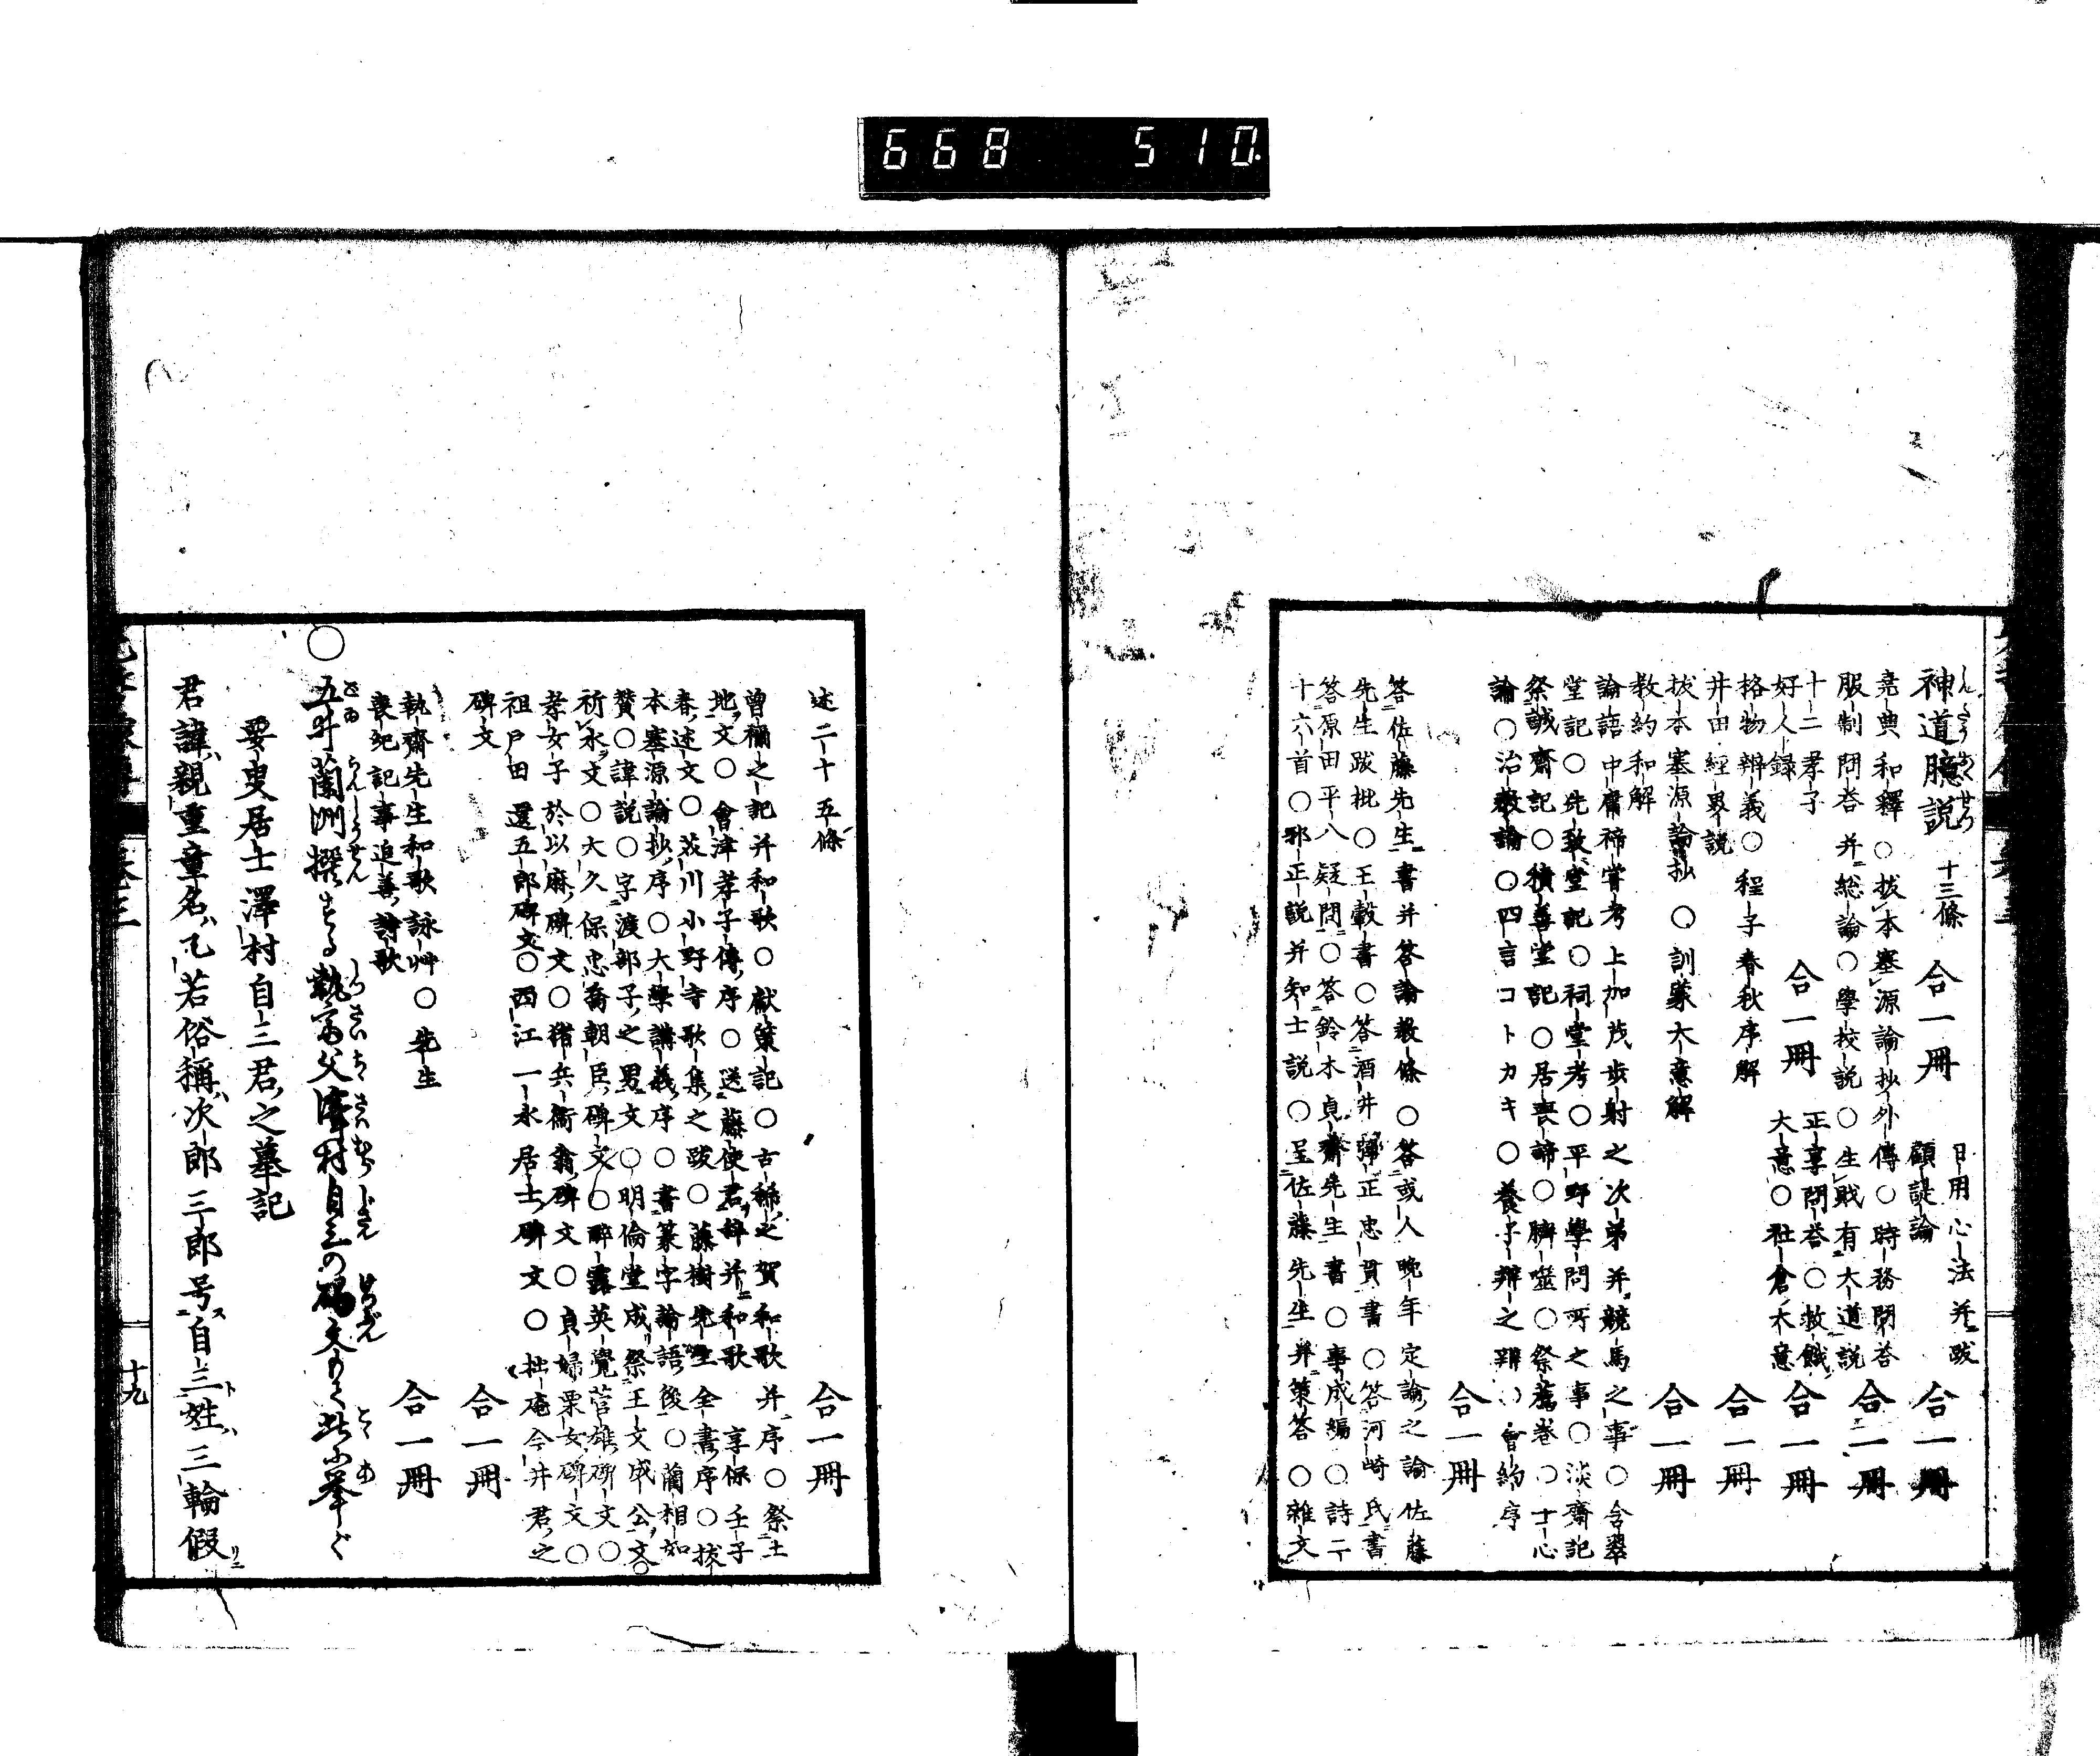 668 510
神道臆説 十三條 合一冊 日用心法并跋 顧諟論 合一冊
堯典和釋 ○拔本塞源論抄外傳○時務問答
服制問答并總論○學校説○生財有大道説 合一冊
十二孝子 好人録 合一冊 正享問答○救餓大意○社倉大意 合一冊
格物辨義○程子春秋序解
井田經界説 合一冊
拔本塞源論抄 ○訓蒙大意解
教約和解 合一冊
論語中庸禘嘗考上加茂歩射之次第并競馬之事○含翠
堂記○先致堂記○祠堂考○平野學問所之事○淡齋記
祭誠齋記○積善堂記○居喪諦○臍噬○祭薦卷○十心
論○治教論○四言コトカキ○養子辨之辨○會約序
合一冊
答佐藤先生書并答論教條○答或人晩年定論之論佐藤
先生跋批○王轂書○答酒井彈正忠貫書○答河崎氏書
答原田平八疑問○答鈴木貞齋先生書○事成編○詩二
十六首○邪正説并知士説○呈佐藤先生并策答○雜文
述二十五條 合一冊
曾禰之記并和歌○獻策記○古稀之賀和歌并序○祭土
地文○會津孝子傳序○送藤使君辞并和歌 享保壬子
春述文○茨川小野寺歌集之跋○藤樹先生全書序○拔
本塞源論抄序○大學講義序○書篆字論語後○藺相如
賛○諱説○字渡部子之男文○明倫堂成祭王文成公文○
祈氷文○大久保忠喬朝臣碑文○醉露英覺菅雄碑文○
孝女子於以麻碑文○猪兵衞翁碑文○貞婦栗女碑文○
祖戸田還五郎碑文○西江一水居士碑文○拙庵今井君之
碑文 合一冊
執齋先生和歌詠艸○先生
喪紀記事追善詩歌 合一冊
○五井蘭洲撰する執齋父澤村自三の碣文もて此に擧ぐ
要叟居士澤村自三君之墓記
君諱親重童名乙若俗稱次郎三郎号自三姓三輪假
十九